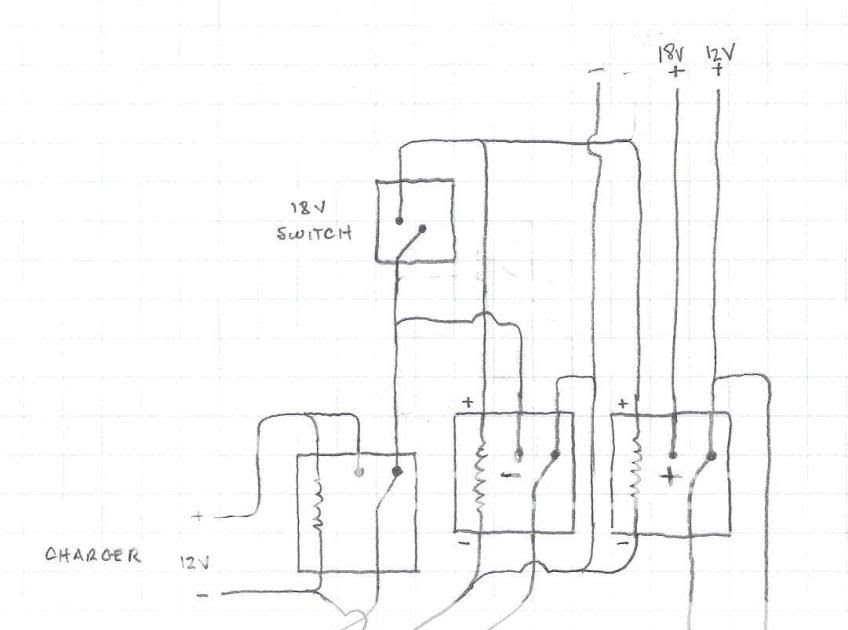 18V 12V
- + +
18V
SWITCH
+ +
- +
+
- -
CHARGER 12V
-